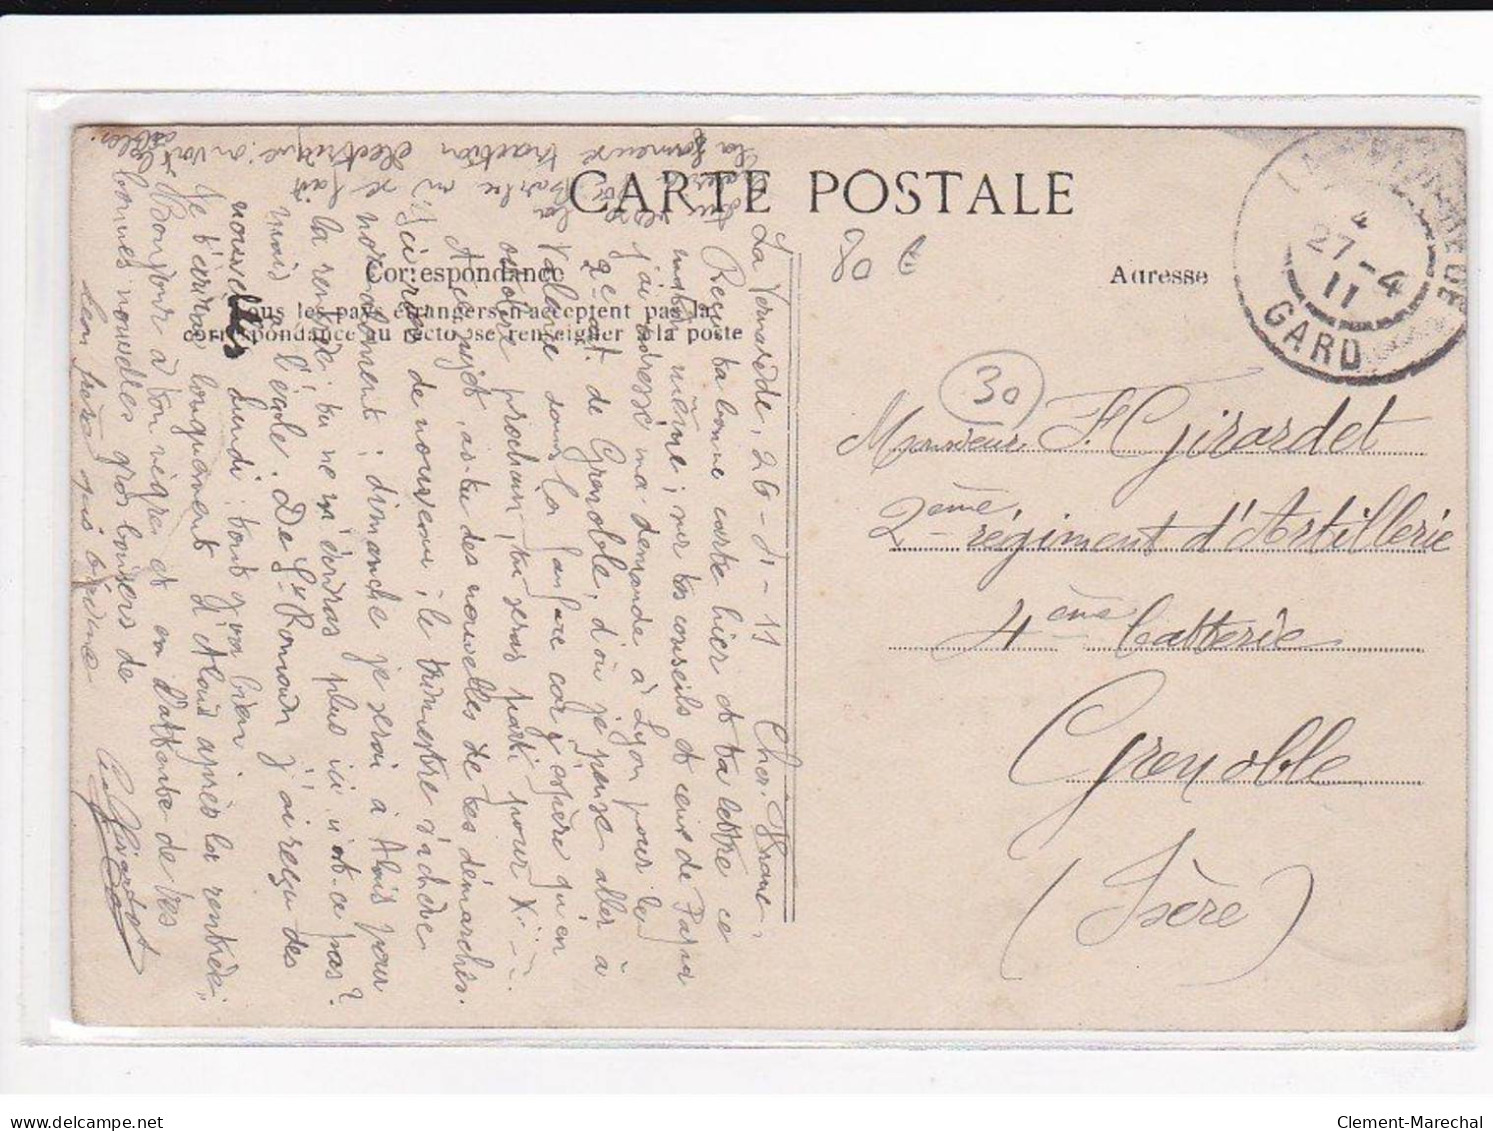 CARTE POSTALE
Correspondance
Adresse
Tous les pays étrangers n'acceptent pas la
correspondance au recto se renseigner à la poste
80 c
30
4
27-4
11
GARD
Monsieur F. Girardet
2ème régiment d'Artillerie
4ème batterie
Grenoble
(Isère)
La Vernarède, 26-4-11 Cher
Reçu ta bonne carte hier et ta lettre ce
matin même ; sur tes conseils et ceux de Papa
j'ai adressé ma demande à Lyon pour le
2e at de Grenoble, d'où je pense aller à
Valence dans la fanfare car j'espère qu'en
octobre prochain, tu seras parti pour
A ce sujet, as-tu des nouvelles de tes démarches.
Ici rien de nouveau, le trimestre s'achève
normalement ; dimanche je serai à Alais pour
la rentrée ; tu ne m'écriras plus ici n'est-ce pas ?
mais à l'école. De St Romain j'ai reçu des
nouvelles lundi : tout va bien
Je t'écrirai longuement d'Alais après la rentrée ;
Bonjour à ton et en attente de tes
bonnes nouvelles gros baisers de
ton frère qui t'aime
Girardet
la fameuse traction électrique : on voit
on se fait
Clement-Marechal